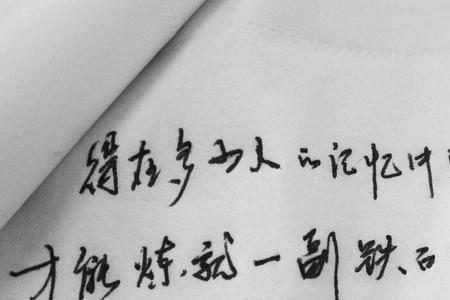 得在多少人的记忆中
才能炼就一副铁石